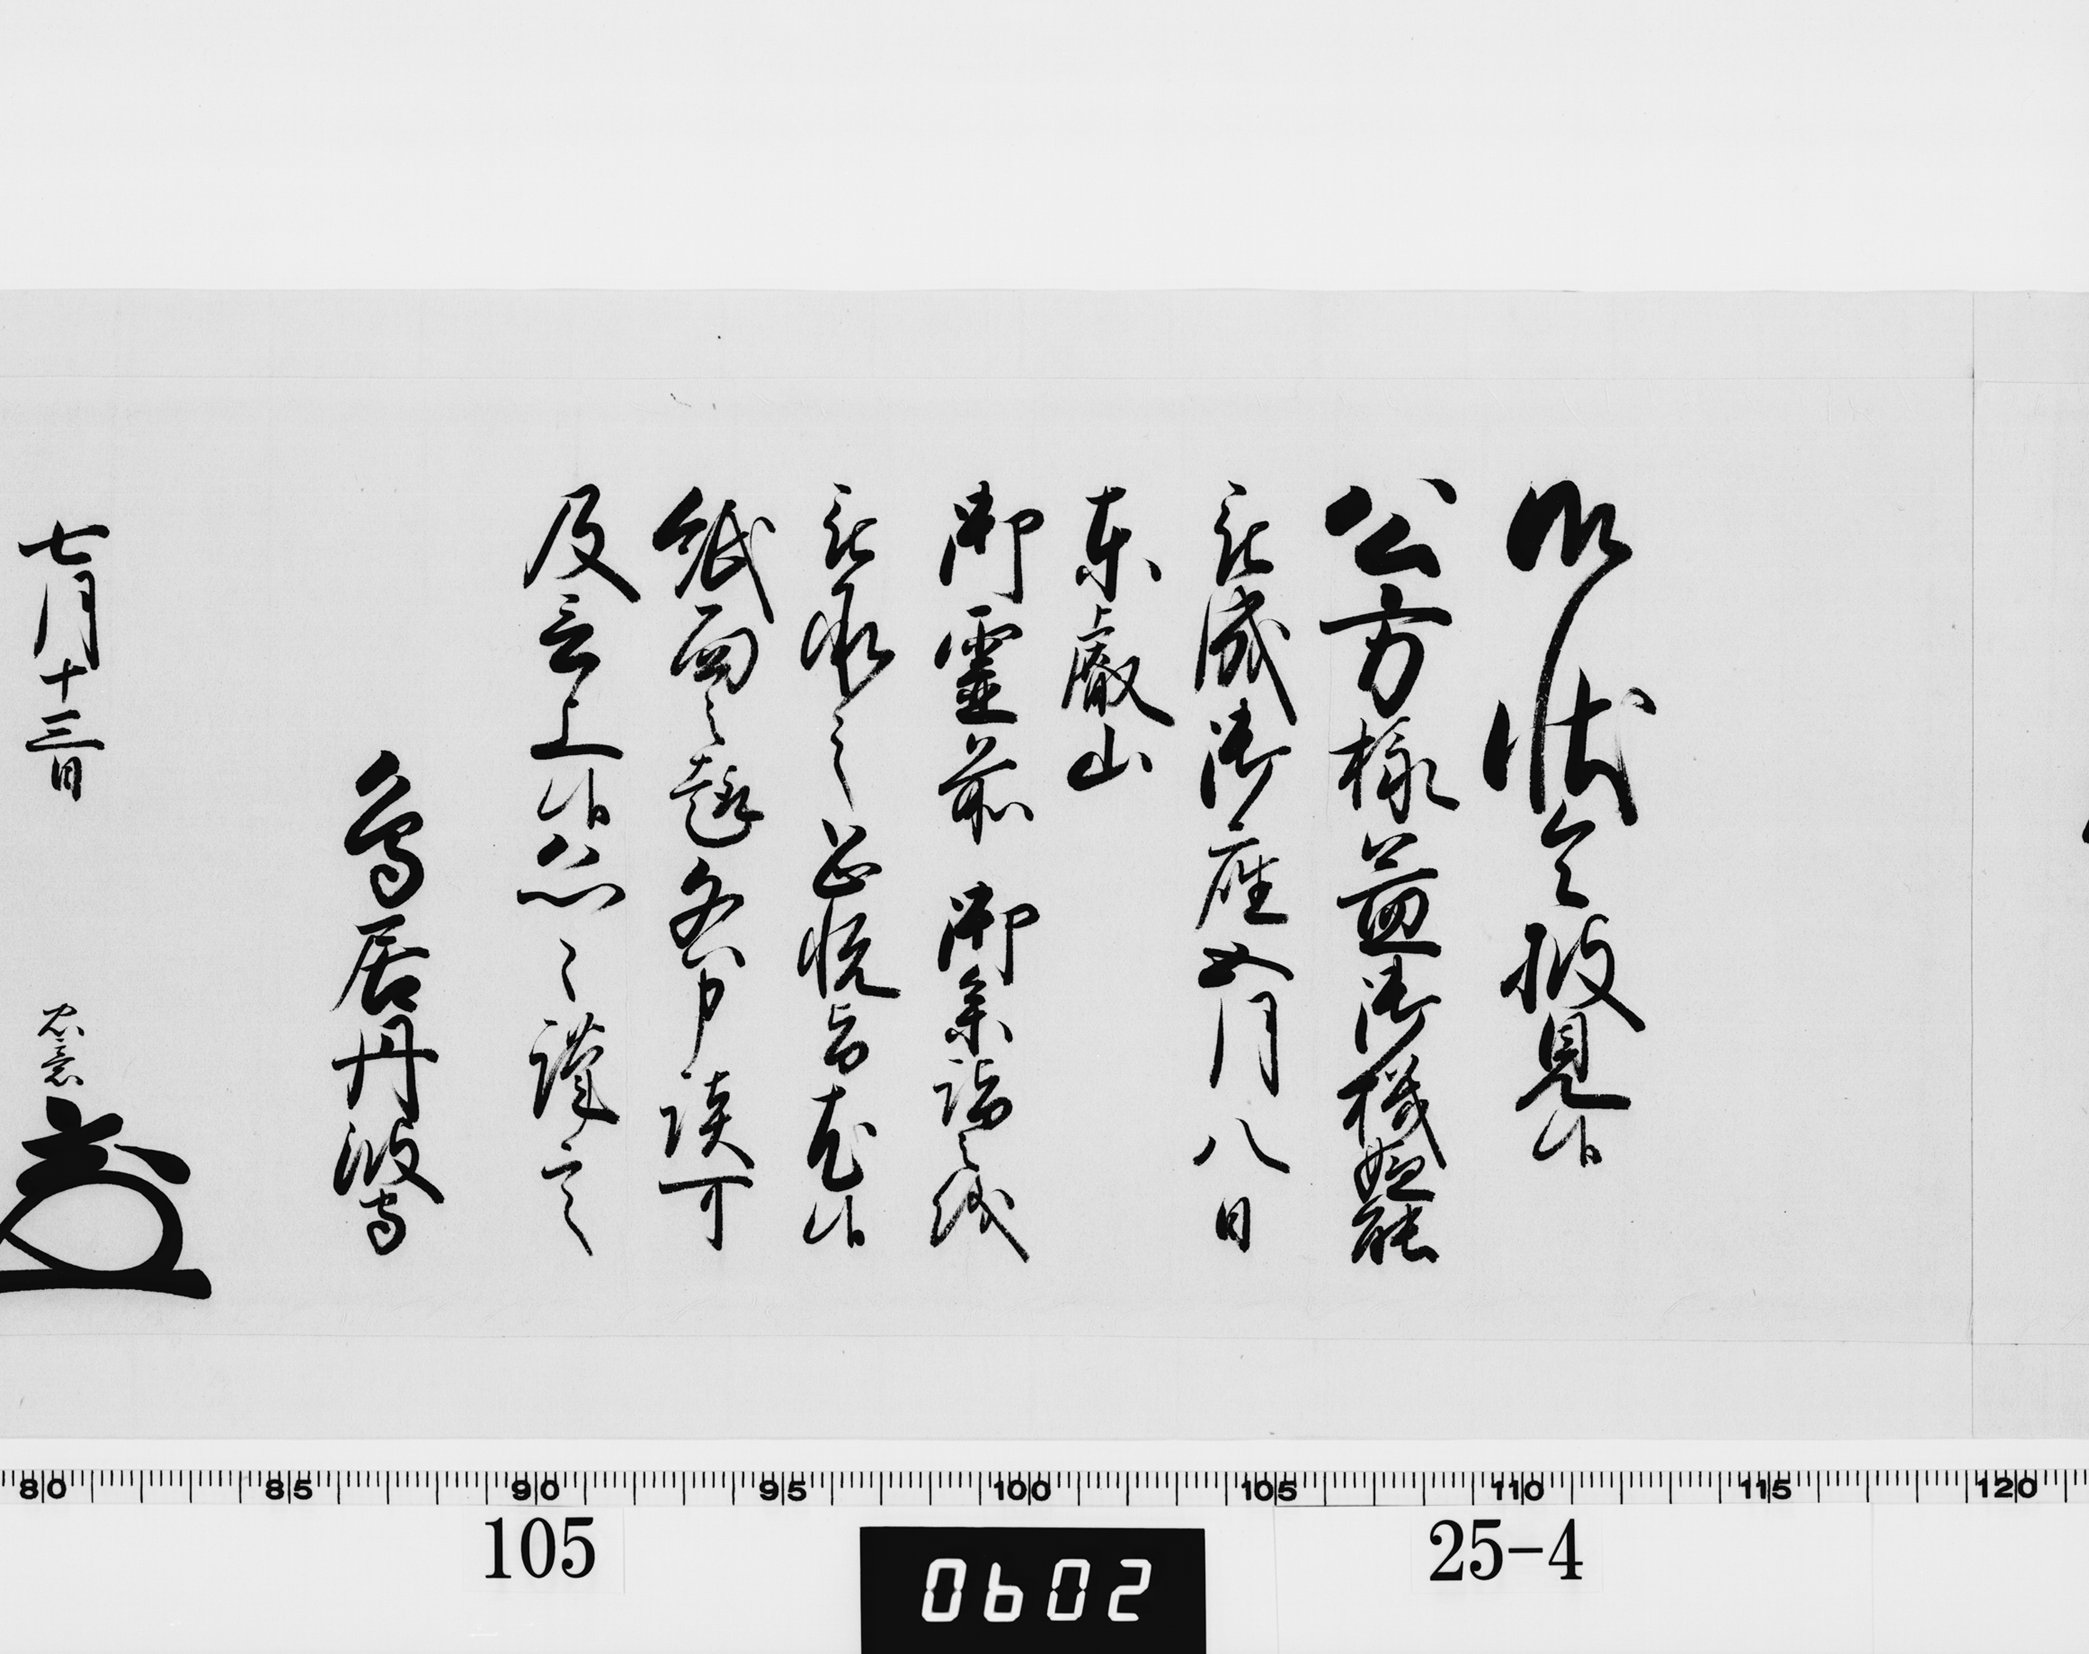 御状令披見候
公方様益御機嫌能
被成御座五月八日
東叡山
御霊前 御参詣之儀
被承之恐悦旨尤候
紙面之趣各申談可
及言上候恐々謹言
鳥居丹波守
七月十三日 忠意
80 85 90 95 100 105 110 115 120
105 25-4
0602